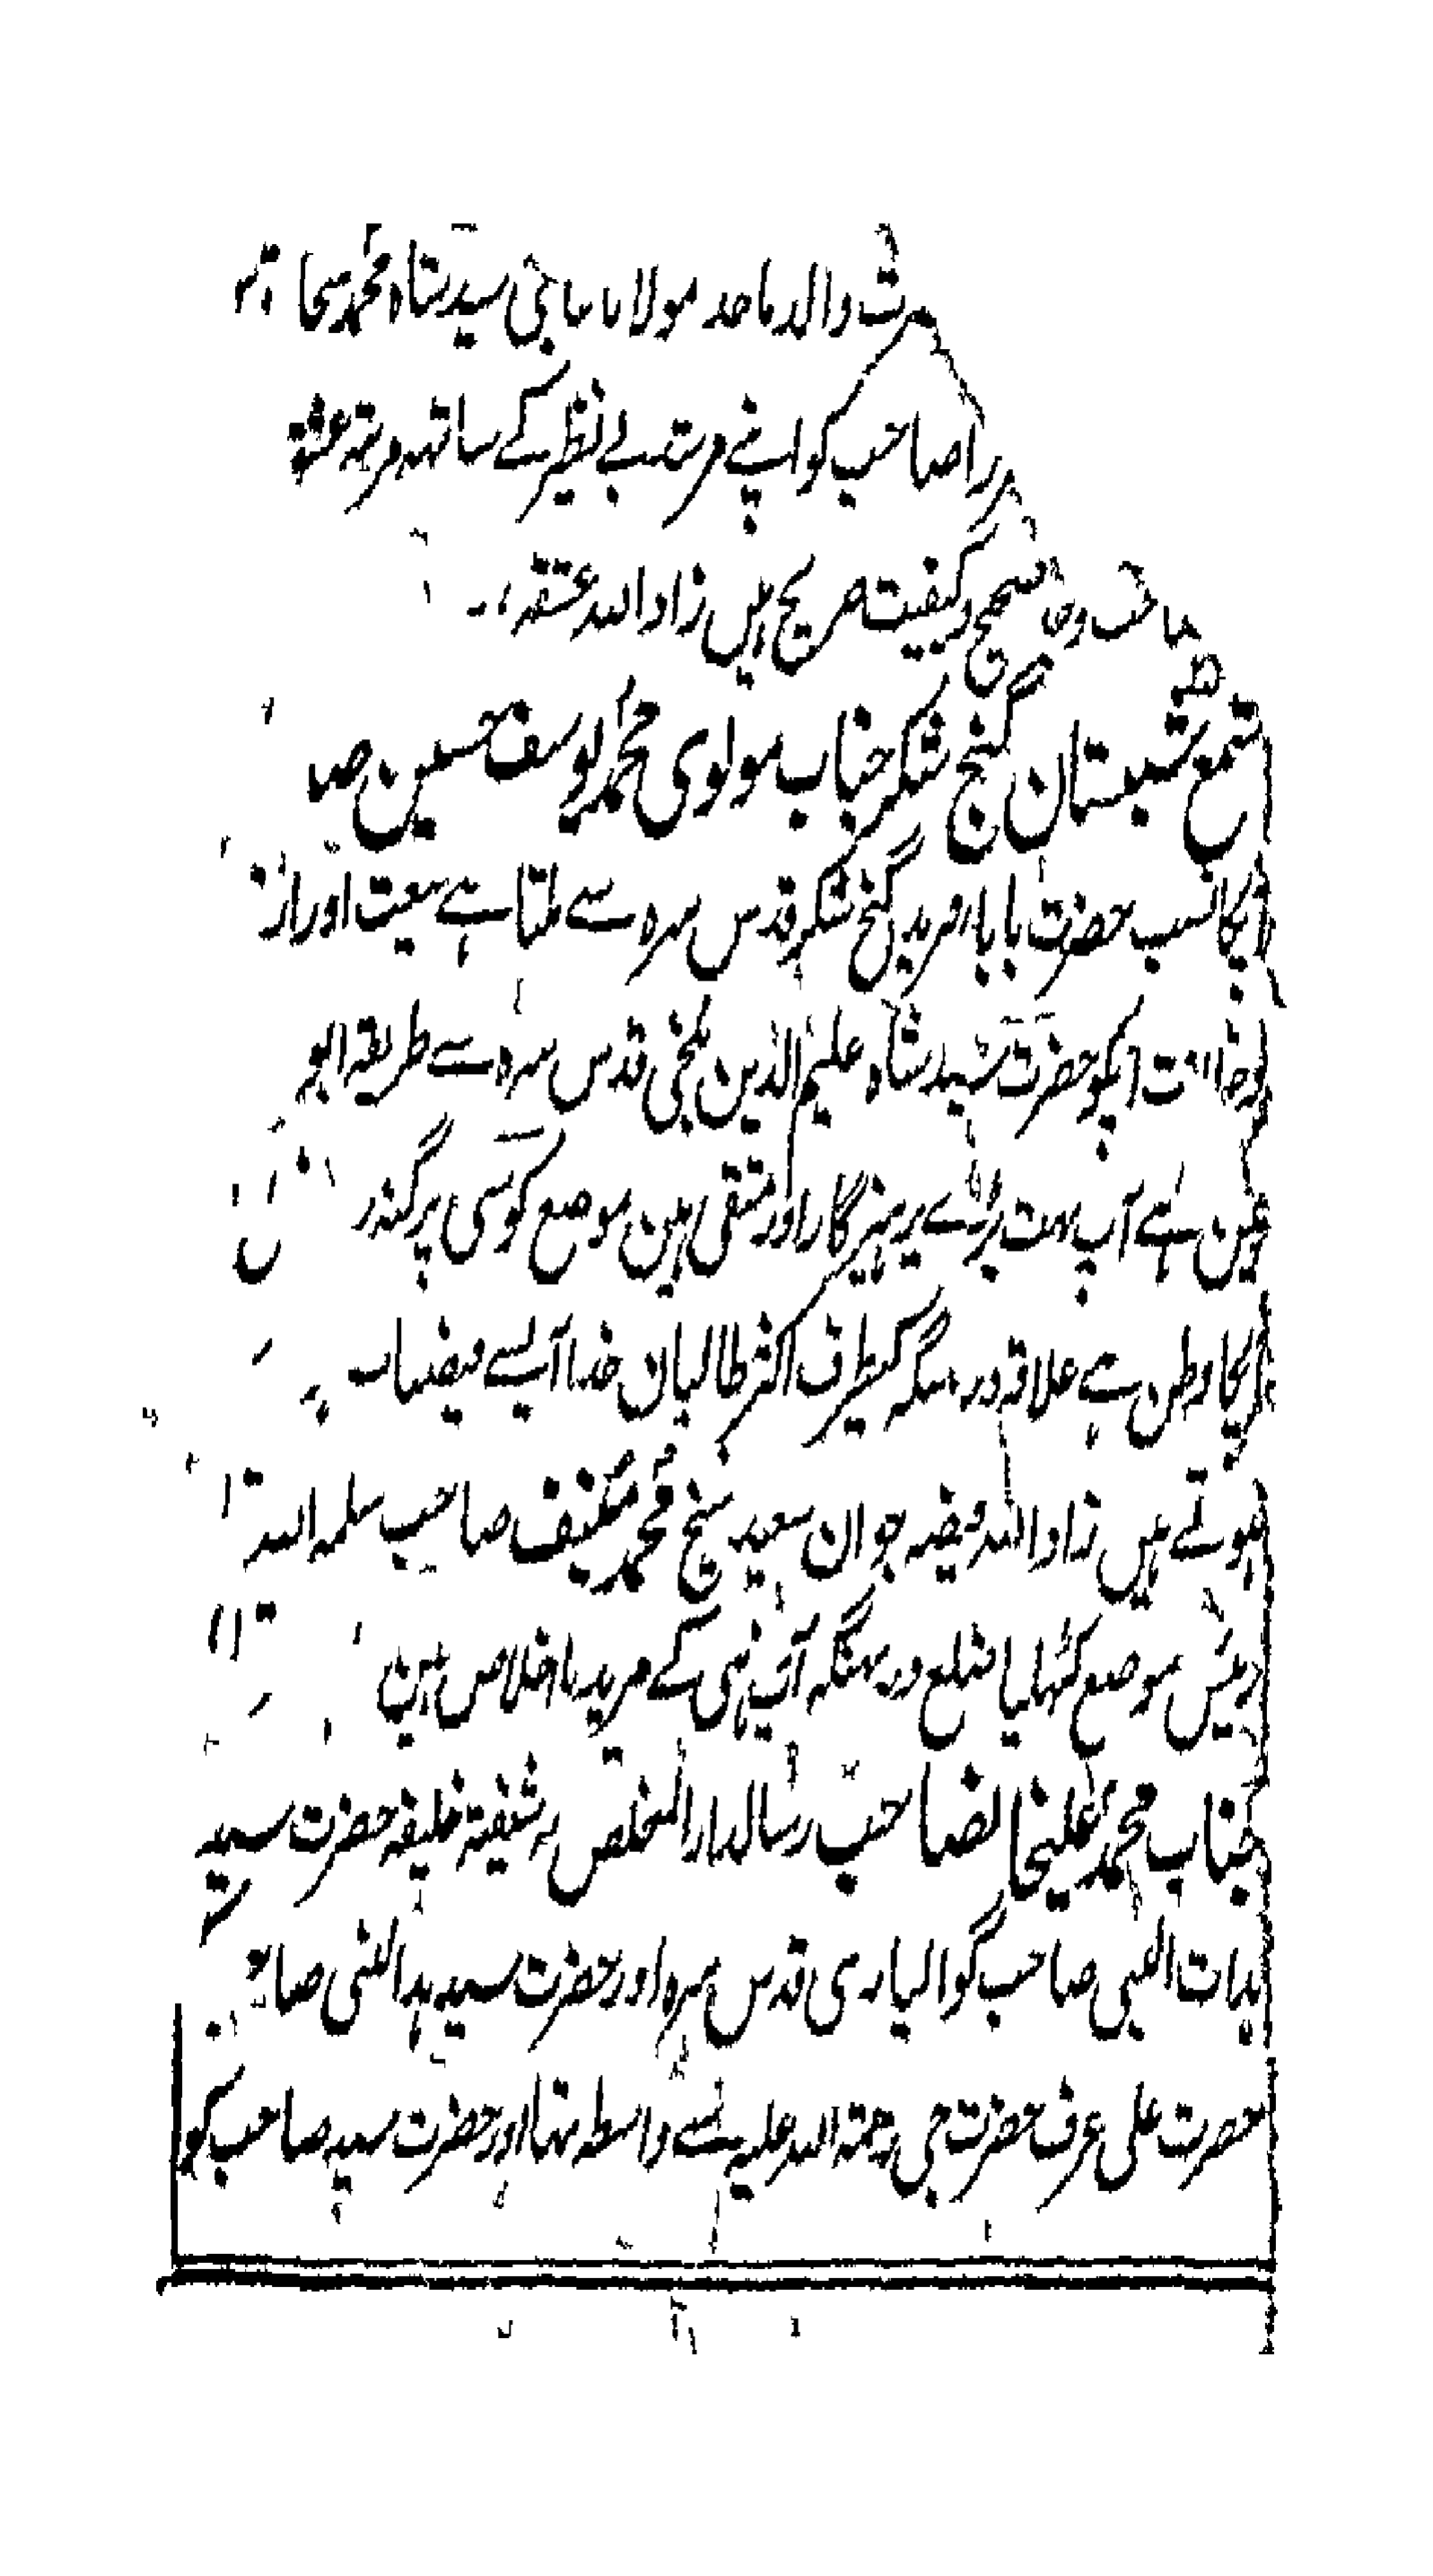 والد ماجد مولانا حاجی سید شاہ محمد سخا
صاحب کو اپنے مرشد بے نظیر کے ساتھ مرتبہ عشق
صاحب وجد صحیح و کیفیت صریح ہیں زاد اللہ عشقہ،،۔
شمع شبستان گنج شکر جناب مولوی محمد یوسف حسین صا
آپکا نسب حضرت بابا فرید گنج شکر قدس سرہ سے ملتا ہے بیعت اور
آپکو حضرت سید شاہ علیم الدین بلخی قدس سرہ سے طریقہ ابو
مین ہے آپ بہت بڑے پرہیزگار اور متقی ہین موضع کوسی پرگنہ
آپکا وطن ہے علاقہ دربہنگہ کیطرف اکثر طالبان خدا آپسے فیضیاب
ہوتے ہیں زاد اللہ فیضہ جوان سعید شیخ محمد صاحب سلمہ اللہ
رئیس موضع کٹہلیا ضلع دربہنگہ آپ ہی کے مرید با اخلاص ہین
جناب محمد علیخانصاحب رسالدار المتخلص بہ شیفتہ خلیفہ حضرت سید
ہدات النبی صاحب گوالیاری قدس سرہ اور حضرت سید ہدا النبی صاحب
حضرت علی عرف حضرت جی رحمتہ اللہ علیہ سے واسطہ تہا اور حضرت سید صاحب کو